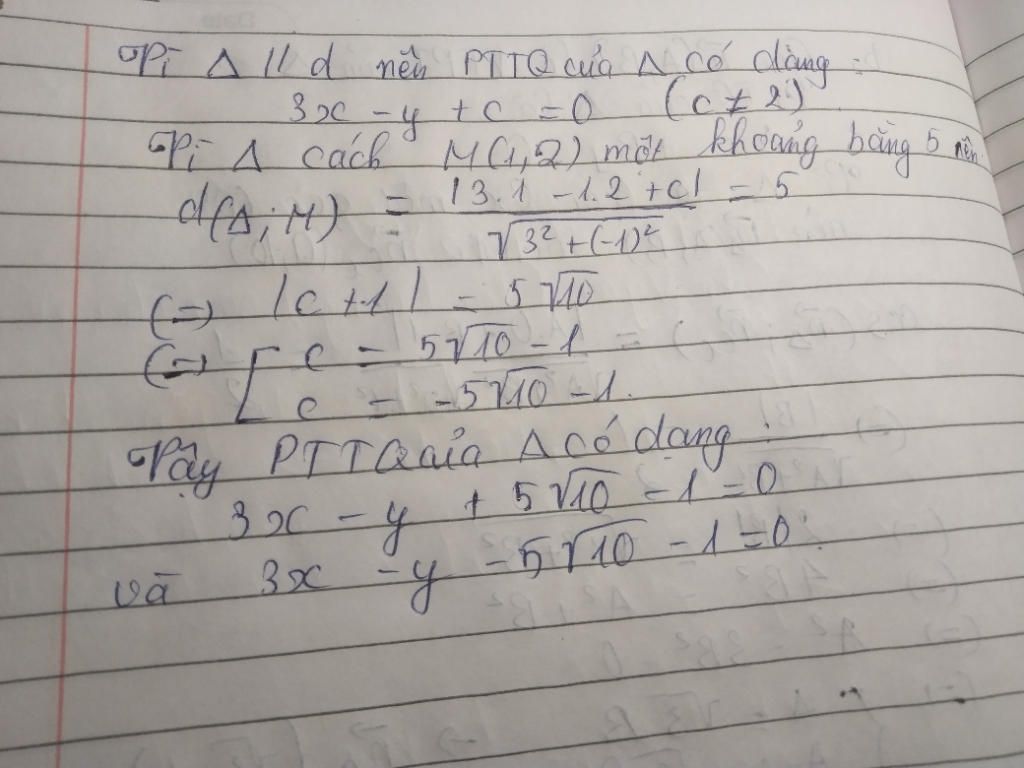 Vì Δ // d nên PTTQ của Δ có dàng :
3x - y + c = 0 (c ≠ 2)
Vì Δ cách M(1,2) một khoảng bằng 5 nên
d(Δ; M) = |3.1 - 1.2 + c| / √(3² + (-1)²) = 5
(=) |c + 1| = 5√10
(=) [ c = 5√10 - 1
c = -5√10 - 1.
Vậy PTTQ của Δ có dạng :
3x - y + 5√10 - 1 = 0
và 3x - y - 5√10 - 1 = 0.